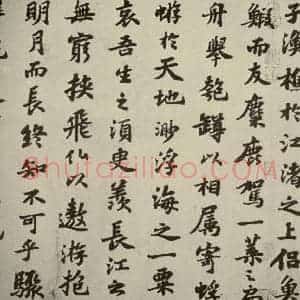 子漁樵於江渚之上侶魚
鰕而友麋鹿駕一葉之
舟舉匏罇以相属寄蜉
蝣於天地渺浮海之一粟
哀吾生之須臾羨長江之
無窮挾飛仙以遨游抱
明月而長終知不可乎驟
Shufaziliao.com